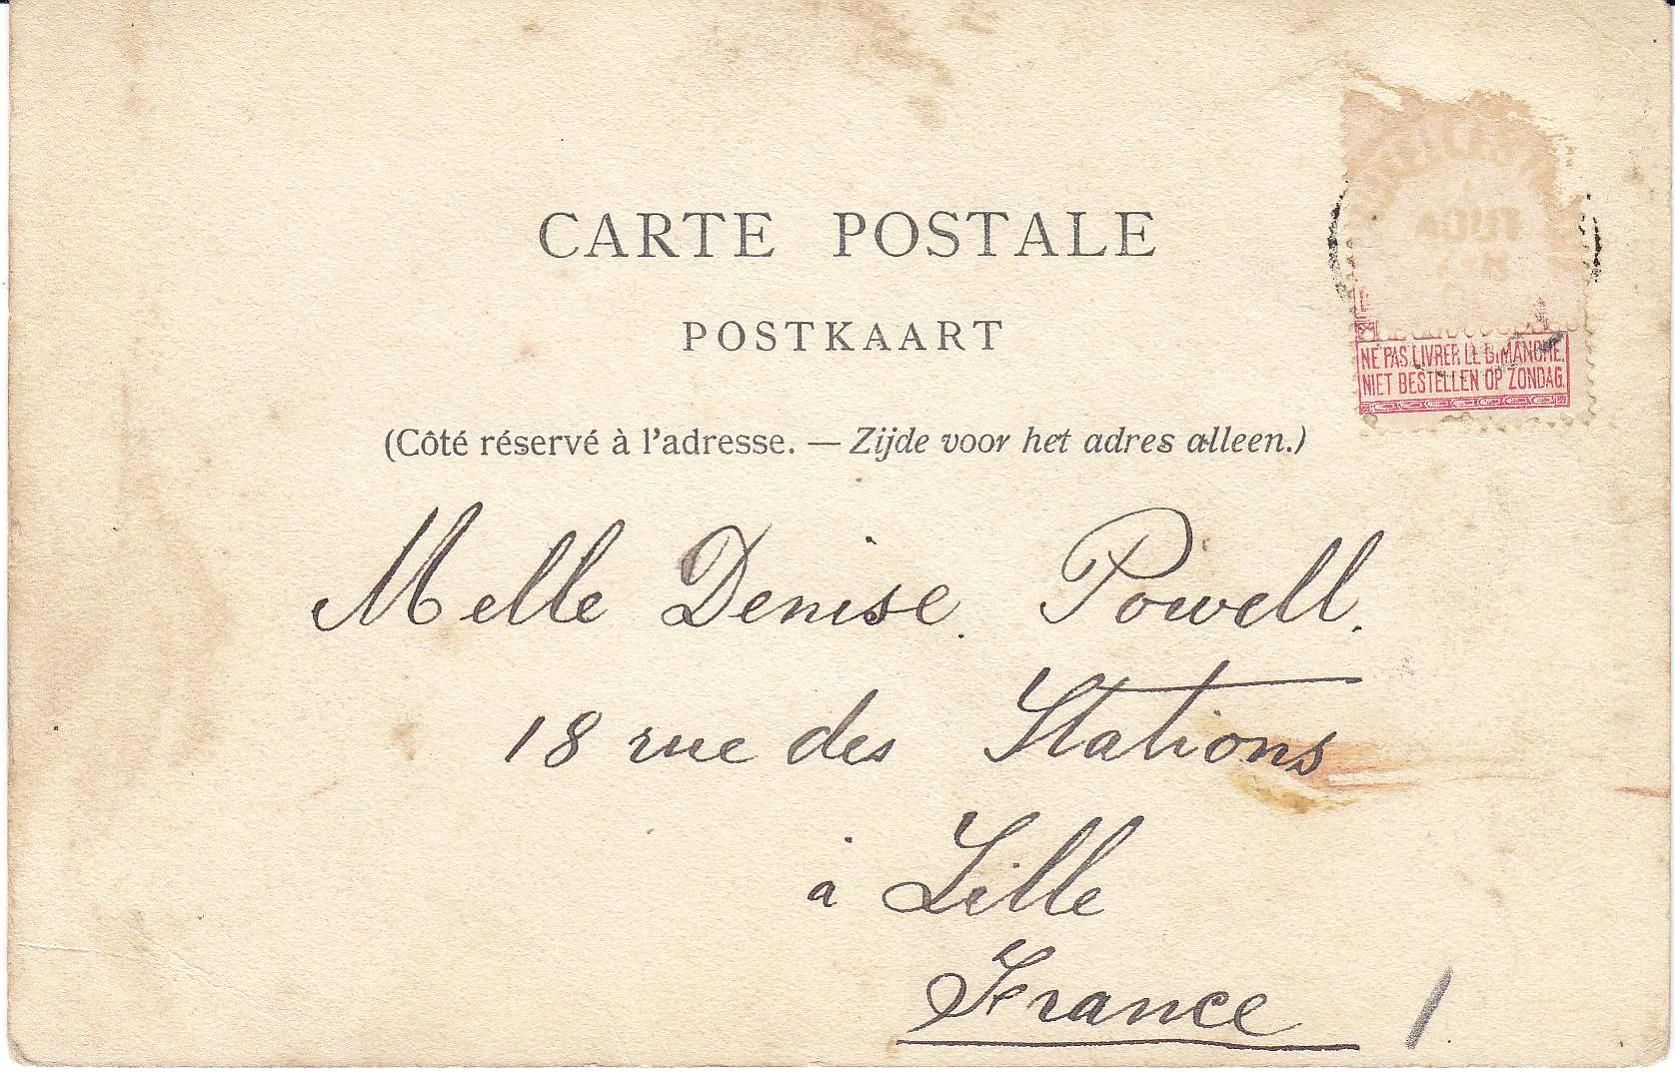 CARTE POSTALE
POSTKAART
(Côté réservé à l'adresse. — Zijde voor het adres alleen.)
NE PAS LIVRER LE DIMANCHE.
NIET BESTELLEN OP ZONDAG.
Melle Denise. Powell.
18 rue des Stations
à Lille
France